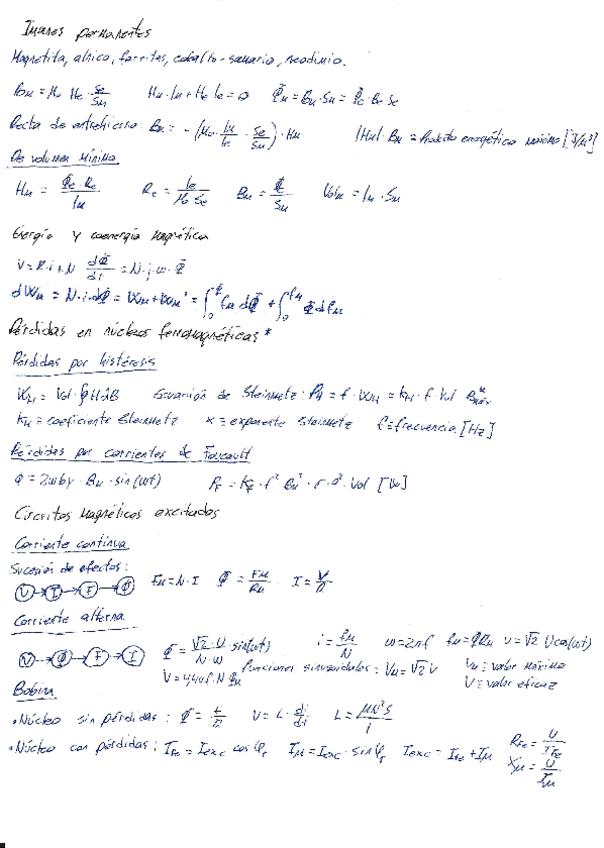 Imanes permanentes
Magnetita, alnico, ferritas, cobalto-samario, neodimio.
Bm = μ₀ He · Se/Sm    Hm · lm + He le = 0    Φm = Bm · Sm = Φe · Be Se
Recta de entrehierro: Bm = - (μ₀ · lm/le · Se/Sm) · Hm    |Hm| · Bm = Producto energético máximo [J/m³]
De volumen mínimo
Hm = Φe · Re / lm    Re = le / μ₀ Se    Bm = Φ / Sm    Volm = lm · Sm
Energía y coenergía magnética
V = R · i + N dΦ/dt = N · j · ω · Φ
dWm = N · i · dΦ = Wm + Wm' = ∫₀^Φ fm dΦ + ∫₀^fm Φ dfm
Pérdidas en núcleos ferromagnéticas *
Pérdidas por histéresis
WH = Vol · ∮ H dB    Ecuación de Steinmetz: PH = f · WH = kH · f · Vol Bmáx^α
KH = coeficiente Steinmetz    α = exponente Steinmetz    f = frecuencia [Hz]
Pérdidas por corrientes de Foucault
Bm · sin(ωt)    PF = KF · f² Bm² · σ · a² · Vol [W]
Circuitos magnéticos excitados
Corriente continua
Sucesión de efectos:
V → I → F → Φ    Fm = N · I    Φ = Fm / Rm    I = V / R
Corriente alterna
V → Φ → F → I    Φ = √2 · U / N · ω sin(ωt)    i = fm / N    ω = 2πf    fm = φ Rm    v = √2 U cos(ωt)
V = 4,44 f · N Φm    Funciones sinusoidales: Vm = √2 V    Vm ≡ valor máximo
V ≡ valor eficaz
Bobina
• Núcleo sin pérdidas:    V = L · di/dt    L = μN²S / l
• Núcleo con pérdidas: IFe = Iexc cos φr    Iμ = Iexc · sin φr    Iexc = IFe + Iμ    RFe = U / IFe
Xμ = U / Iμ